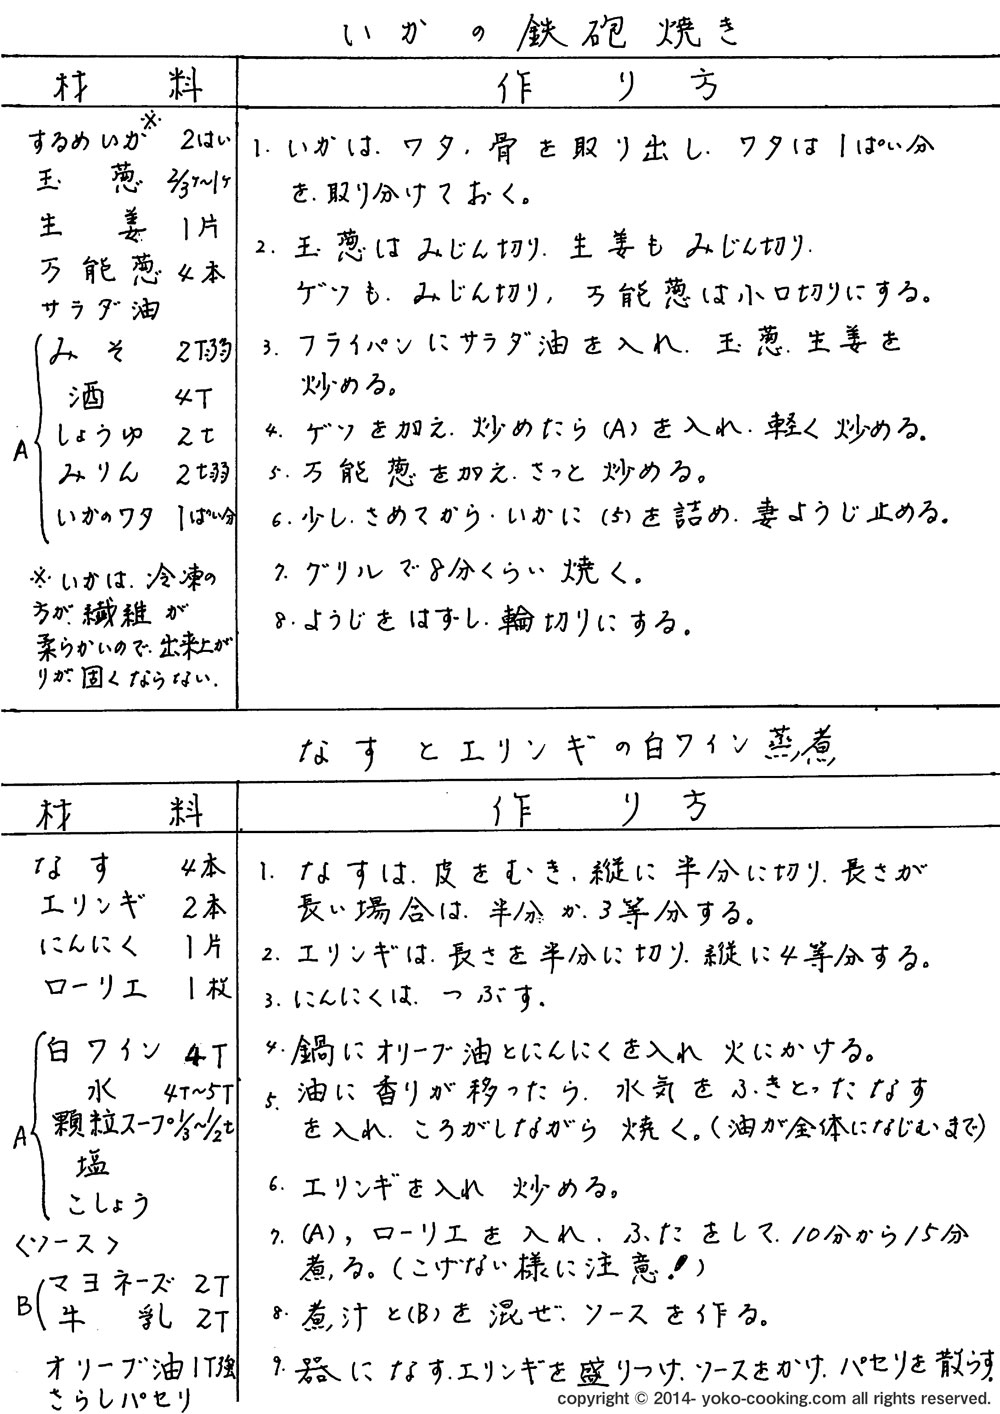 いかの鉄砲焼き
材料
作り方
するめいか※ 2はい
玉葱 2/3ヶ~1ヶ
生姜 1片
万能葱 4本
サラダ油
A
みそ 2T弱
酒 4T
しょうゆ 2t
みりん 2t弱
いかのワタ 1ぱい分
※いかは、冷凍の
方が、繊維が
柔らかいので、出来上が
りが固くならない.
1. いかは、ワタ、骨を取り出し、ワタは1ぱい分
を、取り分けておく。
2. 玉葱はみじん切り、生姜もみじん切り、
ゲソも、みじん切り、万能葱は小口切りにする。
3. フライパンにサラダ油を入れ、玉葱、生姜を
炒める。
4. ゲソを加え、炒めたら(A)を入れ、軽く炒める。
5. 万能葱を加え、さっと炒める。
6. 少し、さめてから、いかに(5)を詰め、妻ようじ止める。
7. グリルで8分くらい焼く。
8. ようじをはずし、輪切りにする。
なすとエリンギの白ワイン蒸煮
材料
作り方
なす 4本
エリンギ 2本
にんにく 1片
ローリエ 1枚
A
白ワイン 4T
水 4T~5T
顆粒スープ 1/3~1/2t
塩
こしょう
<ソース>
B
マヨネーズ 2T
牛乳 2T
オリーブ油 1T強
さらしパセリ
1. なすは、皮をむき、縦に半分に切り、長さが
長い場合は、半分か、3等分する。
2. エリンギは、長さを半分に切り、縦に4等分する。
3. にんにくは、つぶす.
4. 鍋にオリーブ油とにんにくを入れ 火にかける。
5. 油に香りが移ったら、水気をふきとったなす
を入れ、ころがしながら焼く。(油が全体になじむまで)
6. エリンギを入れ 炒める。
7. (A), ローリエを入れ、ふたをして、10分から15分
煮る。(こげない様に注意!)
8. 煮汁と(B)を混ぜ、ソースを作る。
9. 器になす、エリンギを盛りつけ、ソースをかけ、パセリを散らす.
copyright © 2014- yoko-cooking.com all rights reserved.